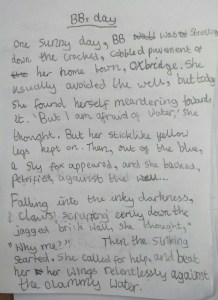 BBr day
One sunny day, BB was strolling
down the cracked, cobbled pavement of
her home town, Oxbridge. She
usually avoided the well, but today
she found herself meandering towards
it. 'But I am afraid of water,' she
thought. But her sticklike yellow
legs kept on. Then, out of the blue,
a sly fox appeared, and she backed,
petrified against the well...
Falling into the inky darkness,
claws scraping eerily down the
jagged brick well, she thought,
"Why me?" Then the sinking
started. She called for help, and beat
her wings relentlessly against
the clammy water.